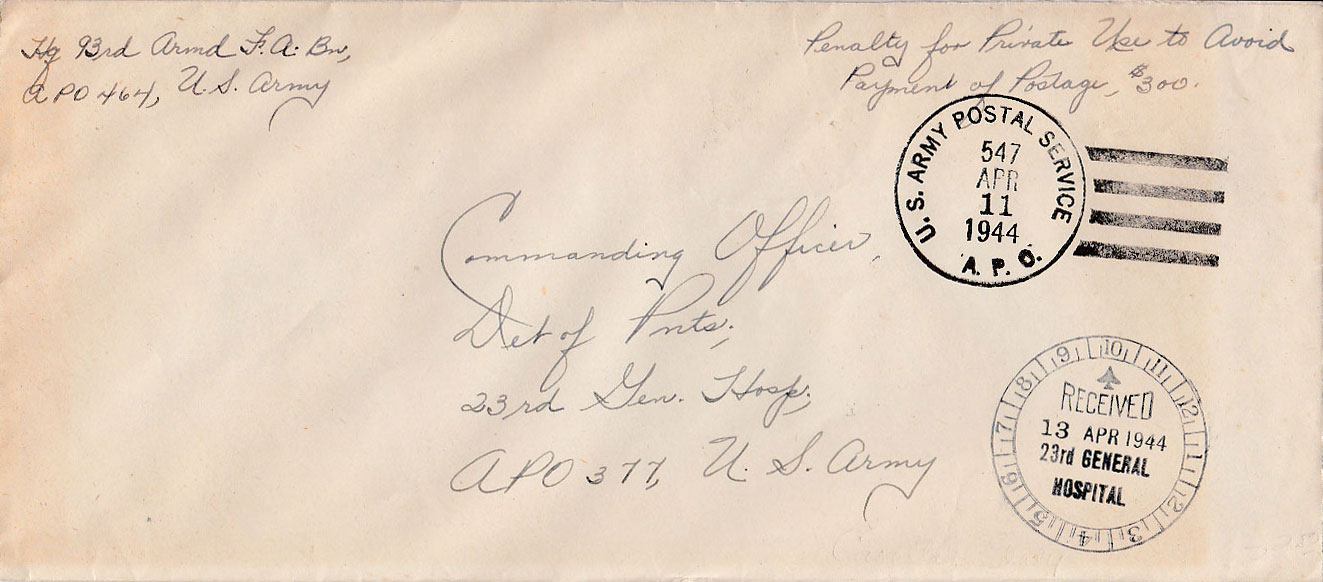 Hq 93rd Armd F.A. Bn,
APO 464, U.S. Army
Penalty for Private Use to Avoid
Payment of Postage, $300.
U.S. ARMY POSTAL SERVICE
547
APR
11
1944
A.P.O.
Commanding Officer,
Det of Pnts,
23rd Gen. Hosp,
APO 377, U.S. Army
9 10 11 12 1 2 3 4 5 6 7 8
RECEIVED
13 APR 1944
23rd GENERAL
HOSPITAL